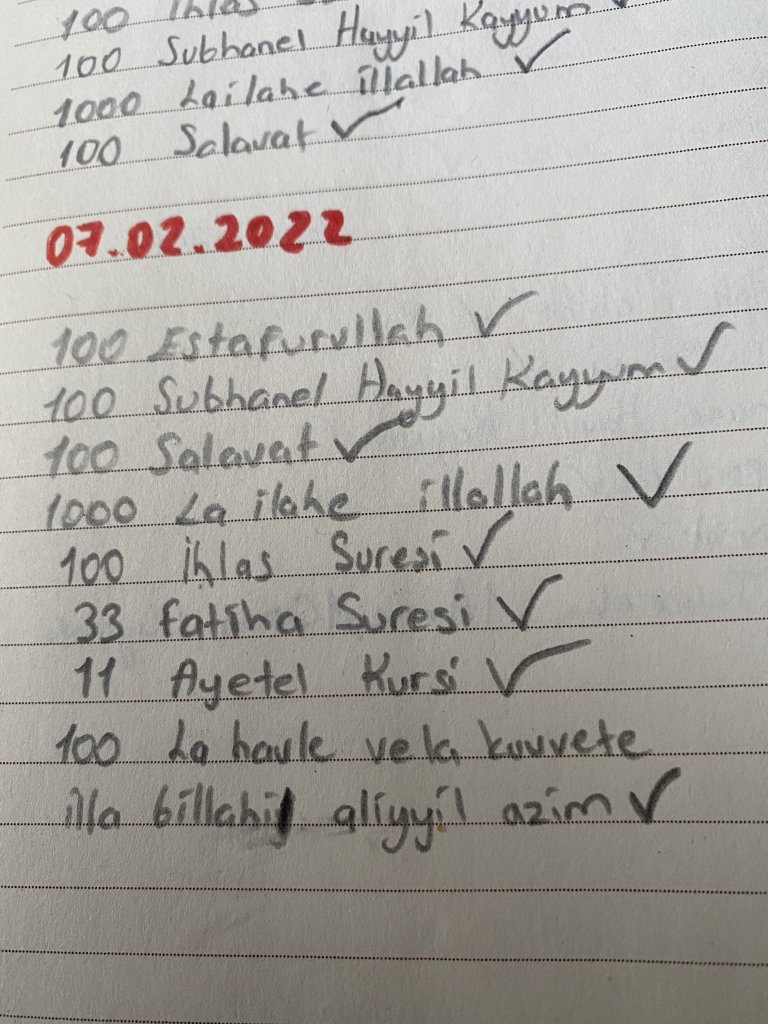 100 ihlas
100 Subhanel Hayyil Kayyum ✓
1000 Lailahe illallah ✓
100 Salavat ✓
07.02.2022
100 Estafurullah ✓
100 Subhanel Hayyil Kayyum ✓
100 Salavat ✓
1000 La ilahe illallah ✓
100 ihlas Suresi ✓
33 Fatiha Suresi ✓
11 Ayetel Kursi ✓
100 La havle vela kuvvete
illa billahil aliyyil azim ✓